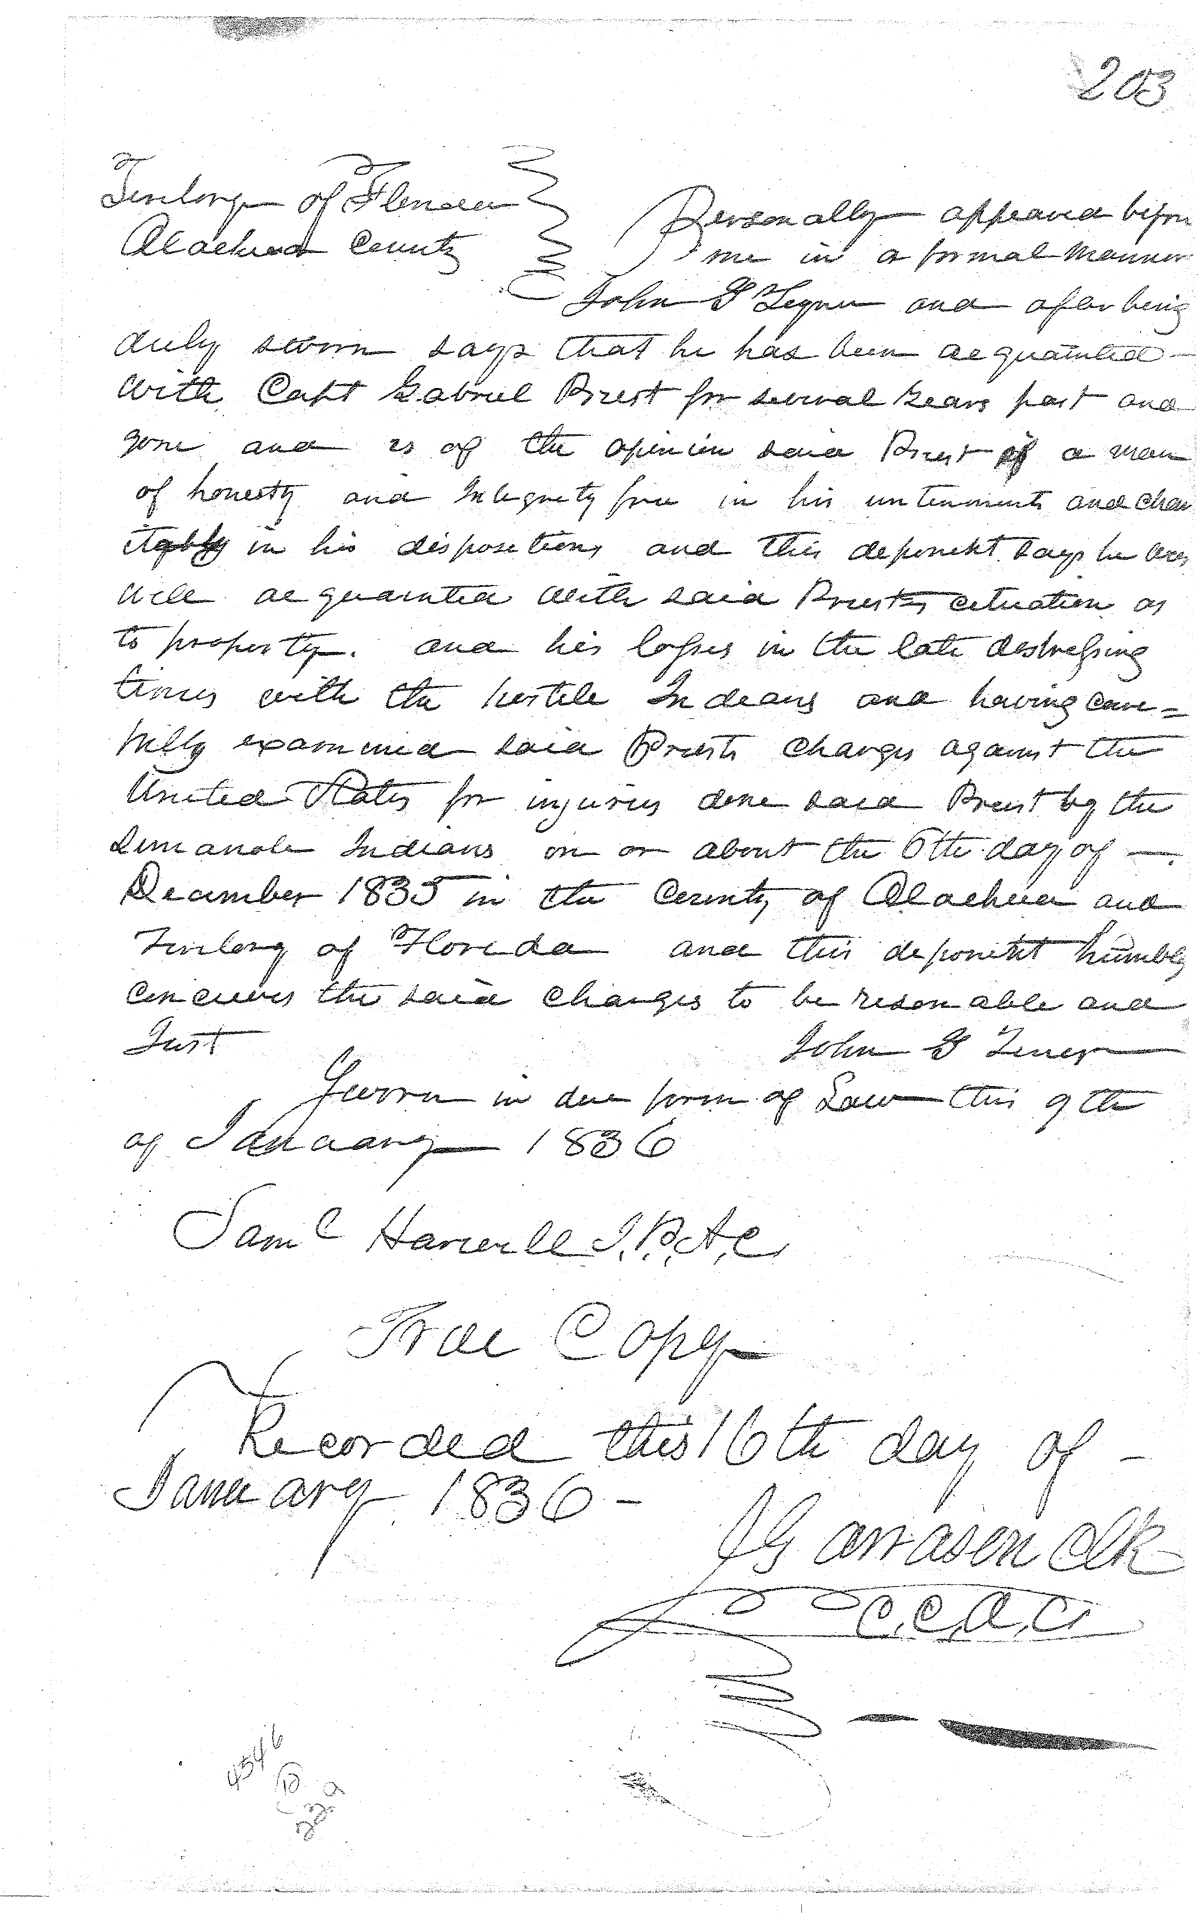 203
of Florida
Alachua County
Personally appeared before
me in a formal manner
John and after being
duly sworn says that he has been acquainted
with Capt Gabriel Priest for several years past and
gone and is of the opinion said Priest is a man
of honesty and Integrity free in his and char
itably in his dispositions and this deponent says he was
well acquainted with said Priests cituation as
to property. and his losses in the late distressing
times with the hostile Indians and having care=
fully examined said Priests charges against the
United States for injuries done said Priest by the
Simanole Indians on or about the 6th day of —
December 1835 in the County of Alachua and
of Florida and this deponent humbly
conceives the said charges to be resonable and
Just John
Sworn in due form of Law this 9th
of January 1836
Saml Harvell J.P.A.C.
True Copy
Recorded this 16th day of -
January 1836 -
Clk
C.C.A.C.
4546